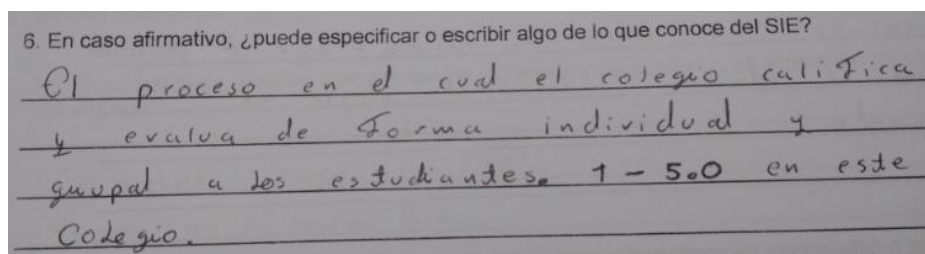 6. En caso afirmativo, ¿puede especificar o escribir algo de lo que conoce del SIE?
El proceso en el cual el colegio califica
y evalua de forma individual y
guupal a los estudiantes. 1 - 5.0 en este
Colegio.